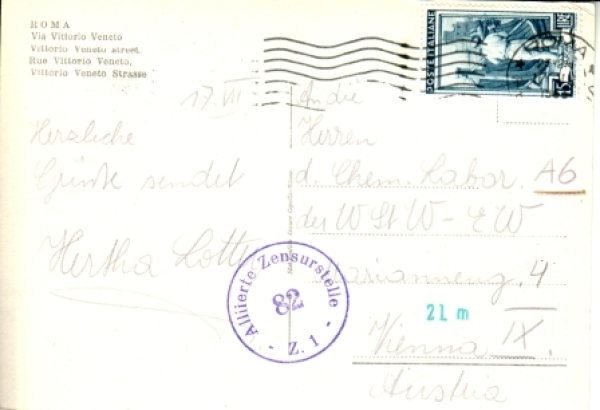 ROMA
Via Vittorio Veneto
Vittorio Veneto street.
Rue Vittorio Veneto,
Vittorio Veneto Strasse
17. VII
Herzliche
Grüße sendet
Hertha
POSTE ITALIANE
LIRE
An die
Herren
d. Chem. Labor. A6
der WStW-EW
Marianneng. 4
21 m
Vienna IX.
Austria
Alliierte Zensurstelle
82
- Z. 1 -